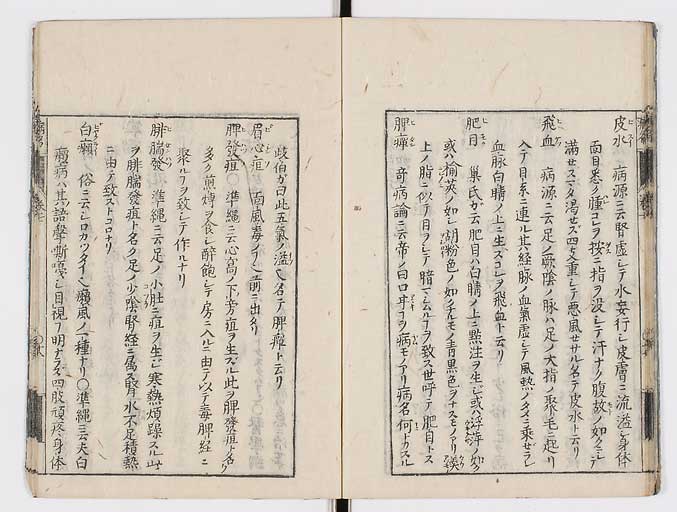 皮水 病源ニ云腎虚レテ水妄行レ皮膚ニ流溢シ身体
面目悉ク腫コレヲ按ニ指ヲ没レテ汗ナク腹故ノ如クニテ
満セスマタ渇セズ四支重レテ悪風セサル名テ皮水ト云リ
飛血 病源ニ云足ノ厥陰ノ脉ハ足ノ大指ノ聚毛ニ起リ
入テ目系ニ連ル其経脉ノ血氣虚レテ風熱ノタメニ乗セラレ
血脉白睛ノ上ニ生スコレヲ飛血ト云リ
肥目 巣氏カ云肥目ハ白睛ノ上ニ點注ヲ生シ或ハ浮萍ノ如ク
或ハ榆莢ノ如シ胡粉色ノ如クナルモノ青黒色ヲナスモノアリ
上ノ脂ニ似テ目ヲレテ暗マムルナヲ致ス世呼テ肥目トス
脾癉 奇病論ニ云帝ノ曰ロ甘コヲ病モノアリ病名何トカスル
岐伯カ曰此五氣ノ溢也名テ脾癉ト云リ
眉心疽 面風毒ノ也前ニ出タリ
脾發疽 準繩ニ云心窩ノ下旁疽ヲ生ズル此ヲ脾發疽ト名ク
多ク煎煿ヲ食シ醉飽レテ房ニ入ルニ由テ以テ毒脾經ニ
聚ルヿヲ致レテ作ルナリ
腓腨發 準繩ニ云足ノ小肚ニ疽ヲ生シ寒熱煩躁スル此
ヲ腓腨發疽ト名ク足ノ少陰腎経ニ属ス腎水不足積熱
ニ由テ致ストコロナリ
白癩 俗ニ云シロカツタイ也癩風ノ一種ナリ〇準繩ニ云夫白
癩病ハ其語聲嘶嗄シ目視ヿ明ナラズ四肢頑疼身体